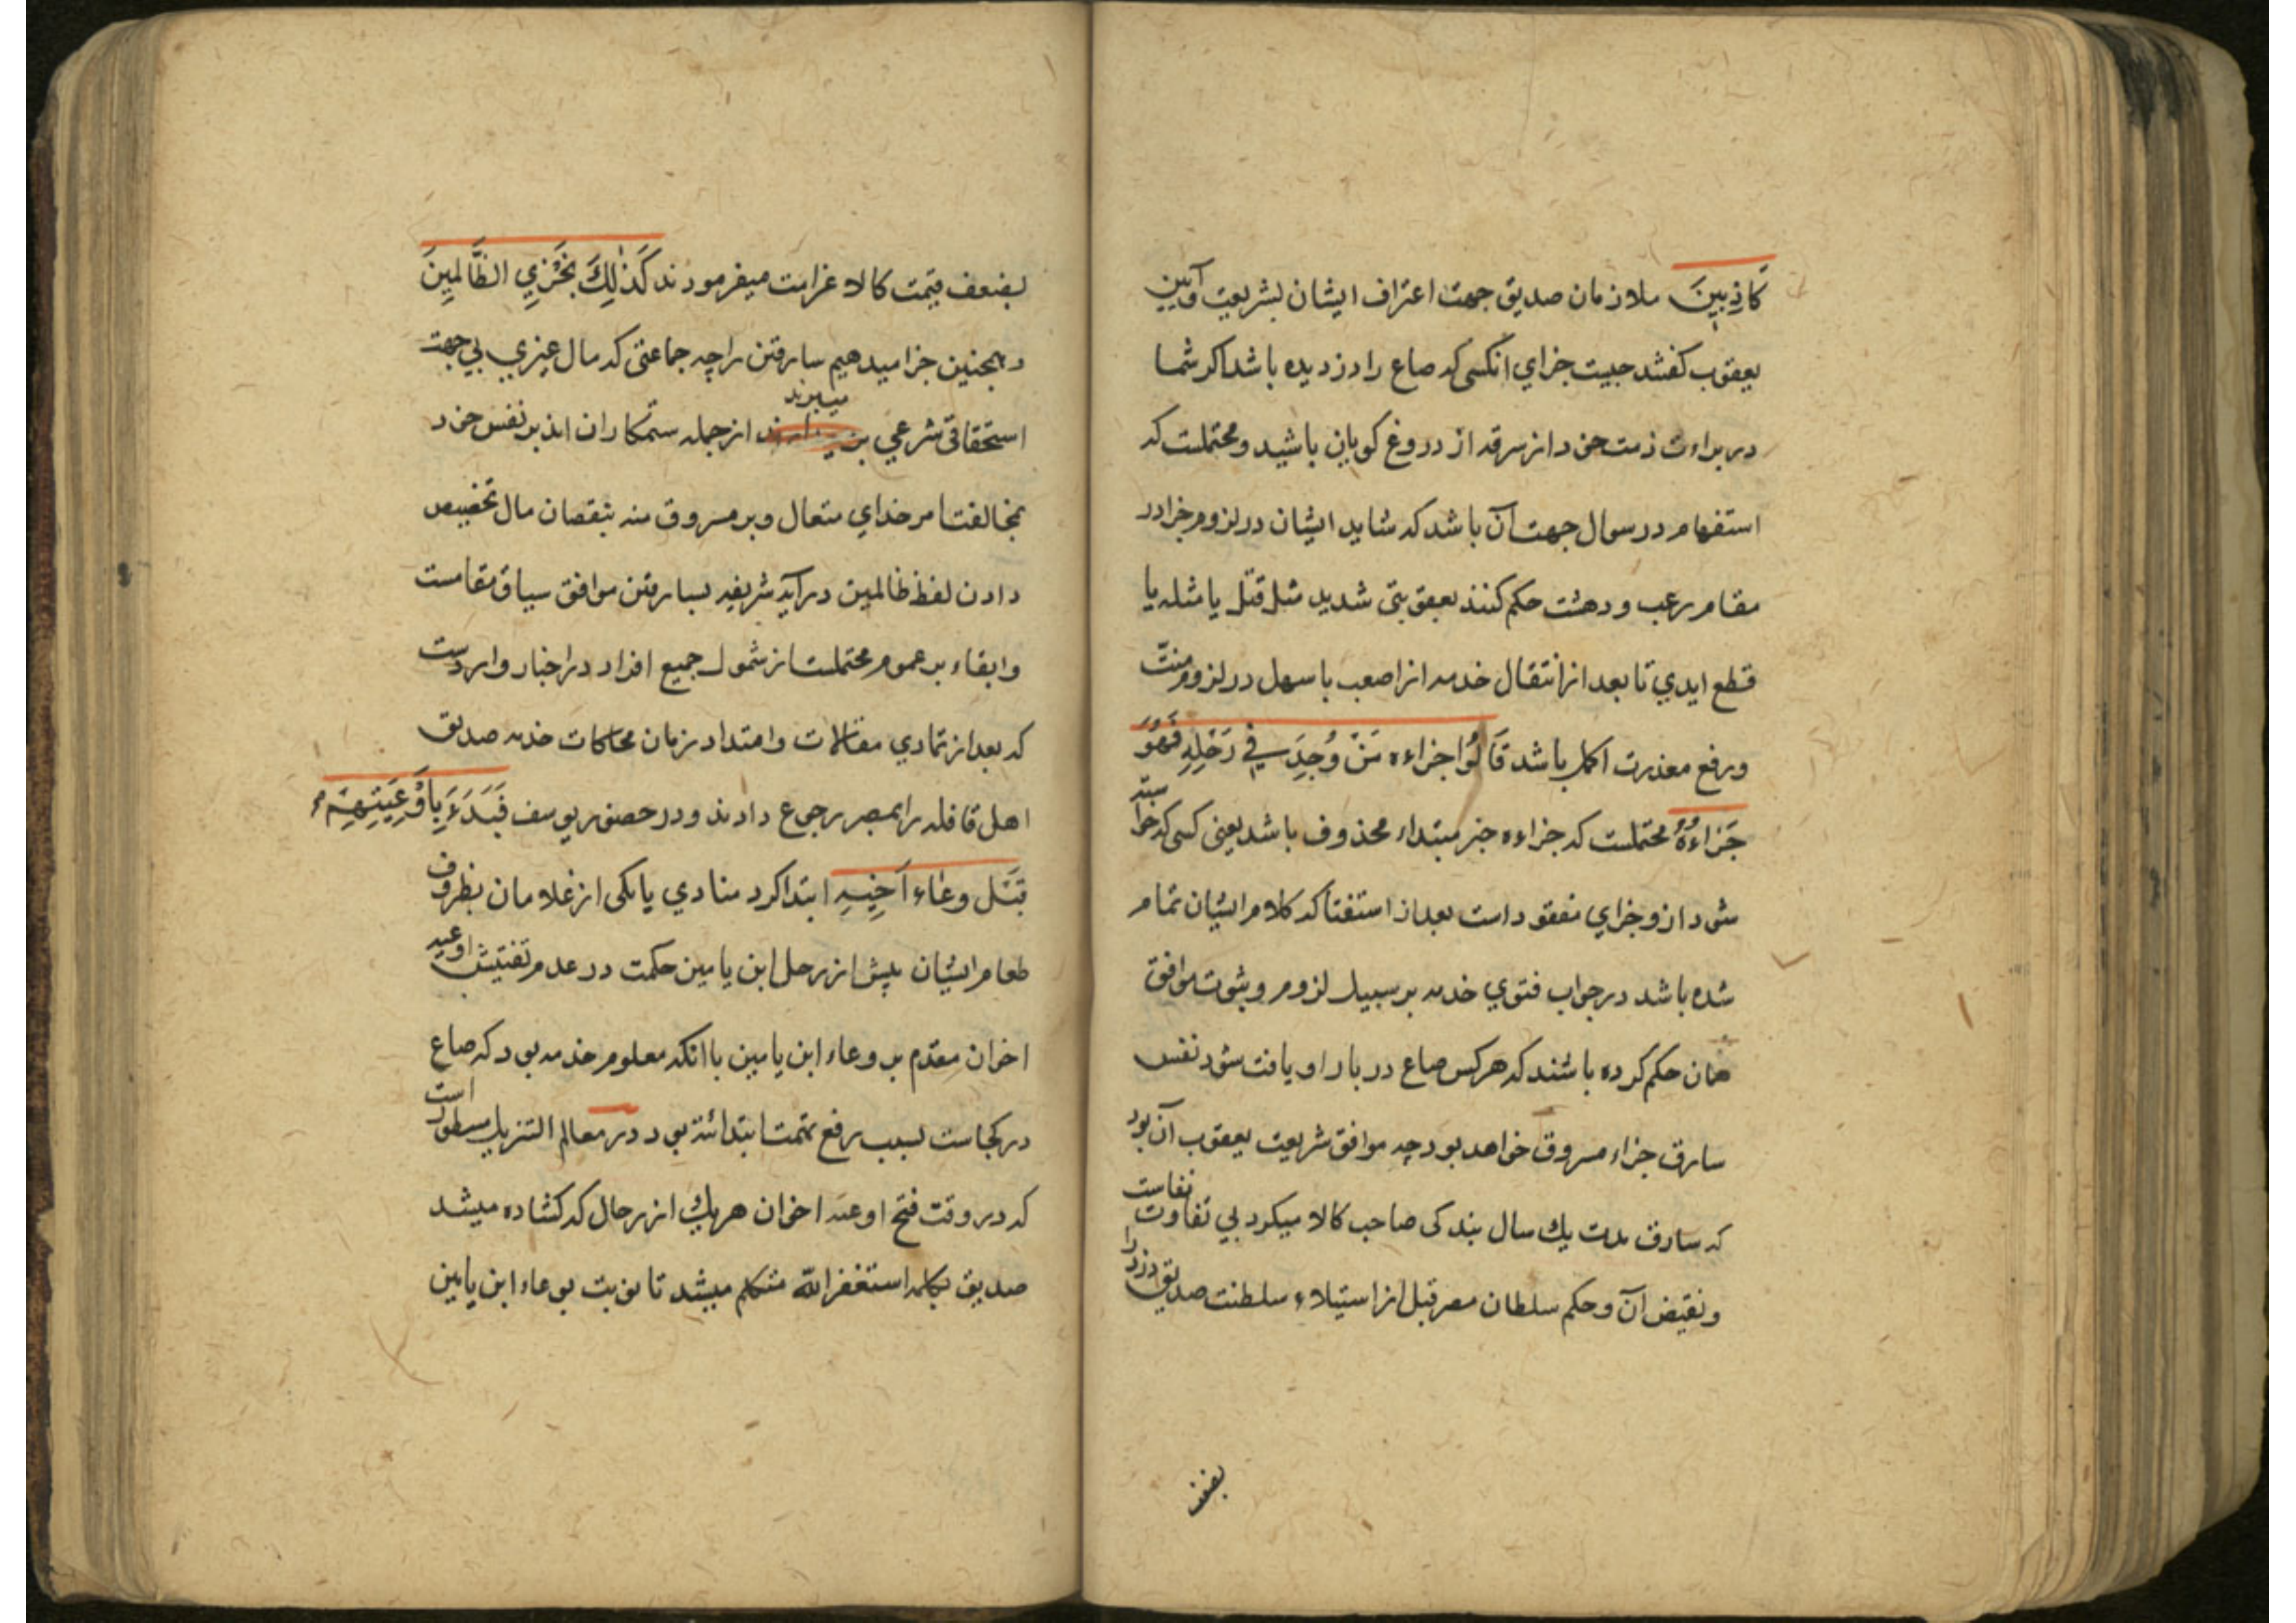 كَاذِبِينَ ملازمان صدیق جهت اعتراف ایشان بشریعت وآیین
یعقوب کفتند چیست جزای انکسی که صاع را دزدیده باشد اکر شما
در براءت ذمت خود از سرقه از دروغ کویان باشید ومحتملست که
استفهام در سوال جهت آن باشد که شاید ایشان در لزوم جزا در
مقام رعب ودهشت حکم کنند بعقوبتی شدید مثل قتل یا مثله یا
قطع ایدی تا بعد از انتقال خدمه از اصعب باسهل در لزوم منت
ورفع معذرت اکمل باشد قَالُوا جزاءه مَنْ وُجِدَ فِي رَحْلِهِ فَهُوَ
جَزَاءُهُ محتملست که جزاءه خبر مبتداء محذوف باشد یعنی کسی که خواسته
شود ازو جزای مفقود است بعد از استفتا که کلام ایشان تمام
شده باشد در جواب فتوی خدمه بر سبیل لزوم وثبوت موافق
همان حکم کرده باشند که هر کس صاع در بار او یافت شود نفس
سارق جزاء مسروق خواهد بود چه موافق شریعت یعقوب آن بود
که سارق مدت یك سال بندکی صاحب کالا میکرد بی تفاوت نفاست
ونقیض آن وحکم سلطان مصر قبل از استیلاء سلطنت صدیق دزد را
بضعف
بضعف قیمت کالا غرامت میفرمودند كَذٰلِكَ نَجْزِي الظَّالِمِينَ
وهمچنین جزا میدهیم سارقین را چه جماعتی که مال غیری بی جهت
استحقاقی شرعی میبرند از جمله ستمکاران اند بر نفس خود
بمخالفت امر خدای متعال وبر مسروق منه بنقصان مال تخصیص
دادن لفظ ظالمین در آیه شریفه بسارقین موافق سیاق مقامست
وابقاء بر عموم محتملست از شمول جمیع افراد در اخبار واردست
که بعد از تمادی مقالات وامتداد زمان محاکات خدمه صدیق
اهل قافله را بمصر رجوع دادند ودر حضور یوسف فَبَدَءَ بِأَوْعِيَتِهِمْ
قَبْلَ وعَاء اَخِيهِ ابتدا کرد منادی یا یکی از غلامان بظروف
طعام ایشان پیش از رحل ابن یامین حکمت در عدم تفتیش اوعیه
اخوان مقدم بر وعاء ابن یامین با انکه معلوم خدمه بود که صاع
در کجاست بسبب رفع تهمت ابتدائه بود ودر معالم التنزیل مسطور است
که در وقت فتح اوعیه اخوان هر یك از رحال که کشاده میشد
صدیق بکلمه استغفر الله متکلم میشد تا نوبت بوعاء ابن یامین